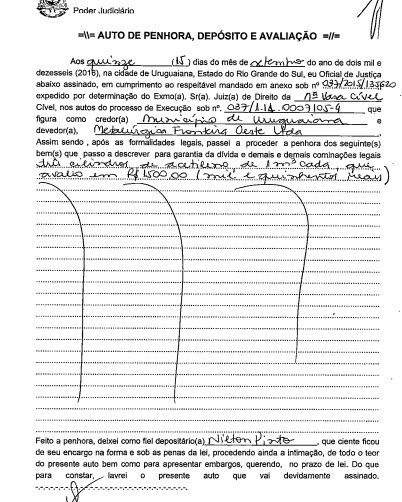 Poder Judiciário
=\\= AUTO DE PENHORA, DEPÓSITO E AVALIAÇÃO =//=
Aos quinze (15) dias do mês de setembro do ano de dois mil e
dezesseis (2016), na cidade de Uruguaiana, Estado do Rio Grande do Sul, eu Oficial de Justiça
abaixo assinado, em cumprimento ao respeitável mandado em anexo sob nº 037/2015/
expedido por determinação do Exmo(a). Sr(a). Juiz(a) de Direito da Vara Cível
Cível, nos autos do processo de Execução sob nº. 037/1.14.0007105-9 que
figura como credor(a) Município de Uruguaiana e
devedor(a), Metalúrgica Fronteira Oeste Ltda
Assim sendo , após as formalidades legais, passei a proceder a penhora dos seguinte(s)
bem(s) que passo a descrever para garantia da dívida e demais e demais cominações legais
três cilindros de acetileno de 1 m³ cada, que
avalio em R$ 1500,00 (mil e quinhentos reais)
Feito a penhora, deixei como fiel depositário(a) Nilton Pinto , que ciente ficou
de seu encargo na forma e sob as penas da lei, procedendo ainda a intimação, de todo o teor
do presente auto bem como para apresentar embargos, querendo, no prazo de lei. Do que
para constar, lavrei o presente auto que vai devidamente assinado.